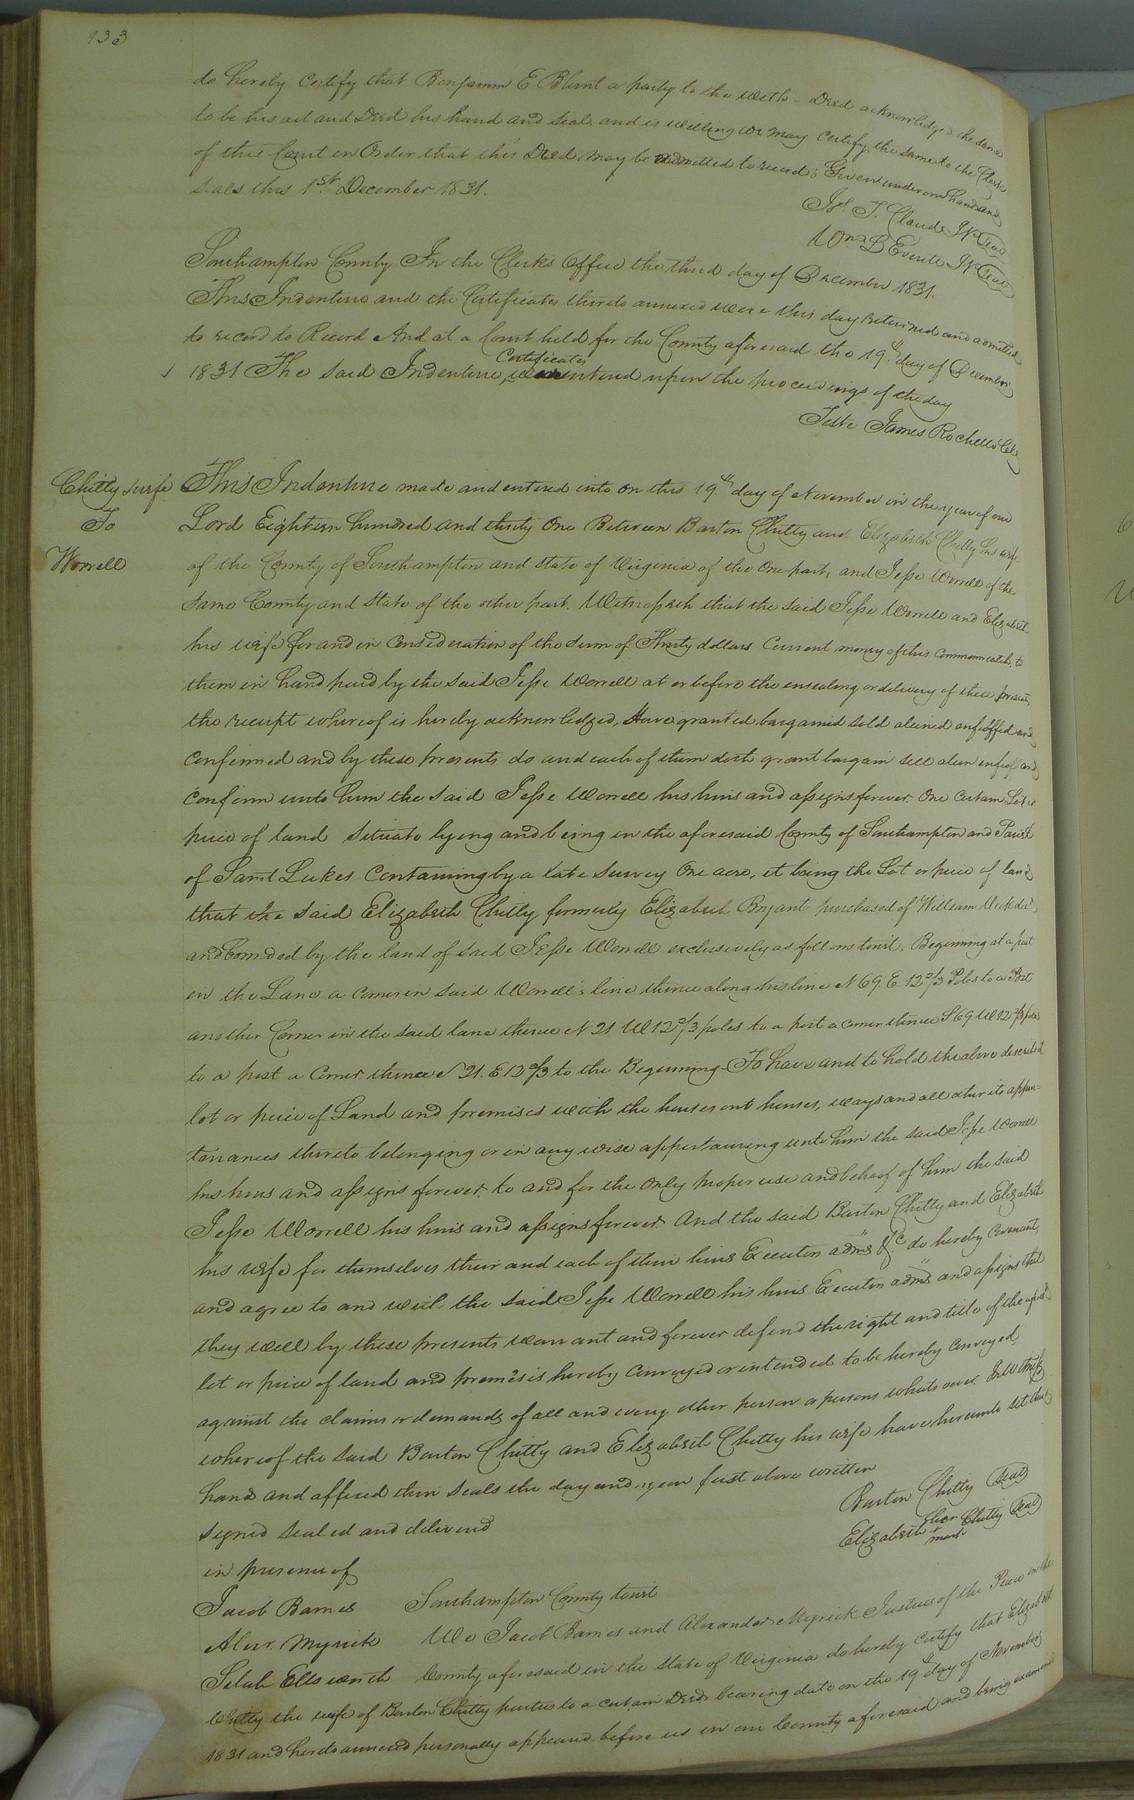 133
do hereby certify that Benjamin E Blunt a party to the with- Deed acknowledged the same
to be his act and Deed his hand and Seal and is willing we may certify the same to the Clerk
of this Court in Order that this Deed may be admitted to record; Given under our hands and
seals this 1st December 1831.
Jos. T. Claud JP Seal
Wm B Everitt JP Seal
Southampton County In the Clerks Office the third day of December 1831.
This Indenture and the Certificate thereto annexed were this day returned and admitted
to record to Record And at a Court held for the County aforesaid the 19th day of December
1831 The said Indenture, Certificates were entered upon the proceedings of the day
Teste James Rochelle Clk
Chitty & wife
To
Worrell
This Indenture made and entered into on this 19th day of November in the year of our
Lord Eighteen hundred and thirty One Between Barton Chitty and Elizabeth Chitty his wife
of the County of Southampton and State of Virginia of the One part, and Jesse Worrell of the
same County and State of the other part. Witnesseth that the said Jesse Worrell and Elizabeth
his wife for and in Consideration of the sum of Thirty dollars Current money of this Commonwealth, to
them in hand paid by the said Jesse Worrell at or before the ensealing or delivery of these presents,
the receipt whereof is hereby acknowledged, Have granted bargained sold aliened enfeoffed and
confirmed and by these presents do and each of them doth grant bargain sell alien enfeoff and
confirm unto him the said Jesse Worrell his heirs and assigns forever One Certain Lot or
piece of land Situate lying and being in the aforesaid County of Southampton and Parish
of Saint Lukes Containing by a late Survey One acre, it being the Lot or piece of land
that the said Elizabeth Chitty formerly Elizabeth Bryant purchased of William
and bounded by the land of said Jesse Worrell exclusively as follows towit. Beginning at a post
on the Lane a Corner in said Worrell's line thence along his line N 69 E 12 2/3 Poles to a Post
another Corner in the said lane thence N 21 W 12 2/3 poles to a post a corner thence S 69 W 12 2/3 poles
to a post a Corner thence N 21. E 12 2/3 to the Beginning. To have and to hold the above described
lot or piece of Land and premises with the houses out houses, ways and all other its appur-
tenances thereto belonging or in any wise appertaining unto him the said Jesse Worrell
his heirs and assigns forever, to and for the only proper use and behoof of him the said
Jesse Worrell his heirs and assigns forever And the said Barton Chitty and Elizabeth
his wife for themselves their and each of their heirs Executors adm.rs &.c do hereby Covenant,
and agree to and with the said Jesse Worrell his heirs Executors adm.rs and assigns that
they will by these presents warrant and forever defend the right and title of the
lot or piece of land and premises hereby Conveyed or intended to be hereby Conveyed,
against the claims or demands of all and every other person or persons whatsoever In Witness
whereof the said Barton Chitty and Elizabeth Chitty his wife have hereunto set their
hands and affixed their seals the day and year first above written
Signed sealed and delivered
in presence of
Barton Chitty Seal
Elizabeth her + mark Chitty Seal
Jacob Barnes
Alexr. Myrick
Selah Ellsworth
Southampton County towit
We Jacob Barnes and Alexander Myrick Justices of the Peace in the
County aforesaid in the State of Virginia do hereby certify that Elizabeth
Chitty the wife of Barton Chitty parties to a certain Deed bearing date on the 19th day of November
1831 and hereto annexed personally appeared before us in our County aforesaid and being examined